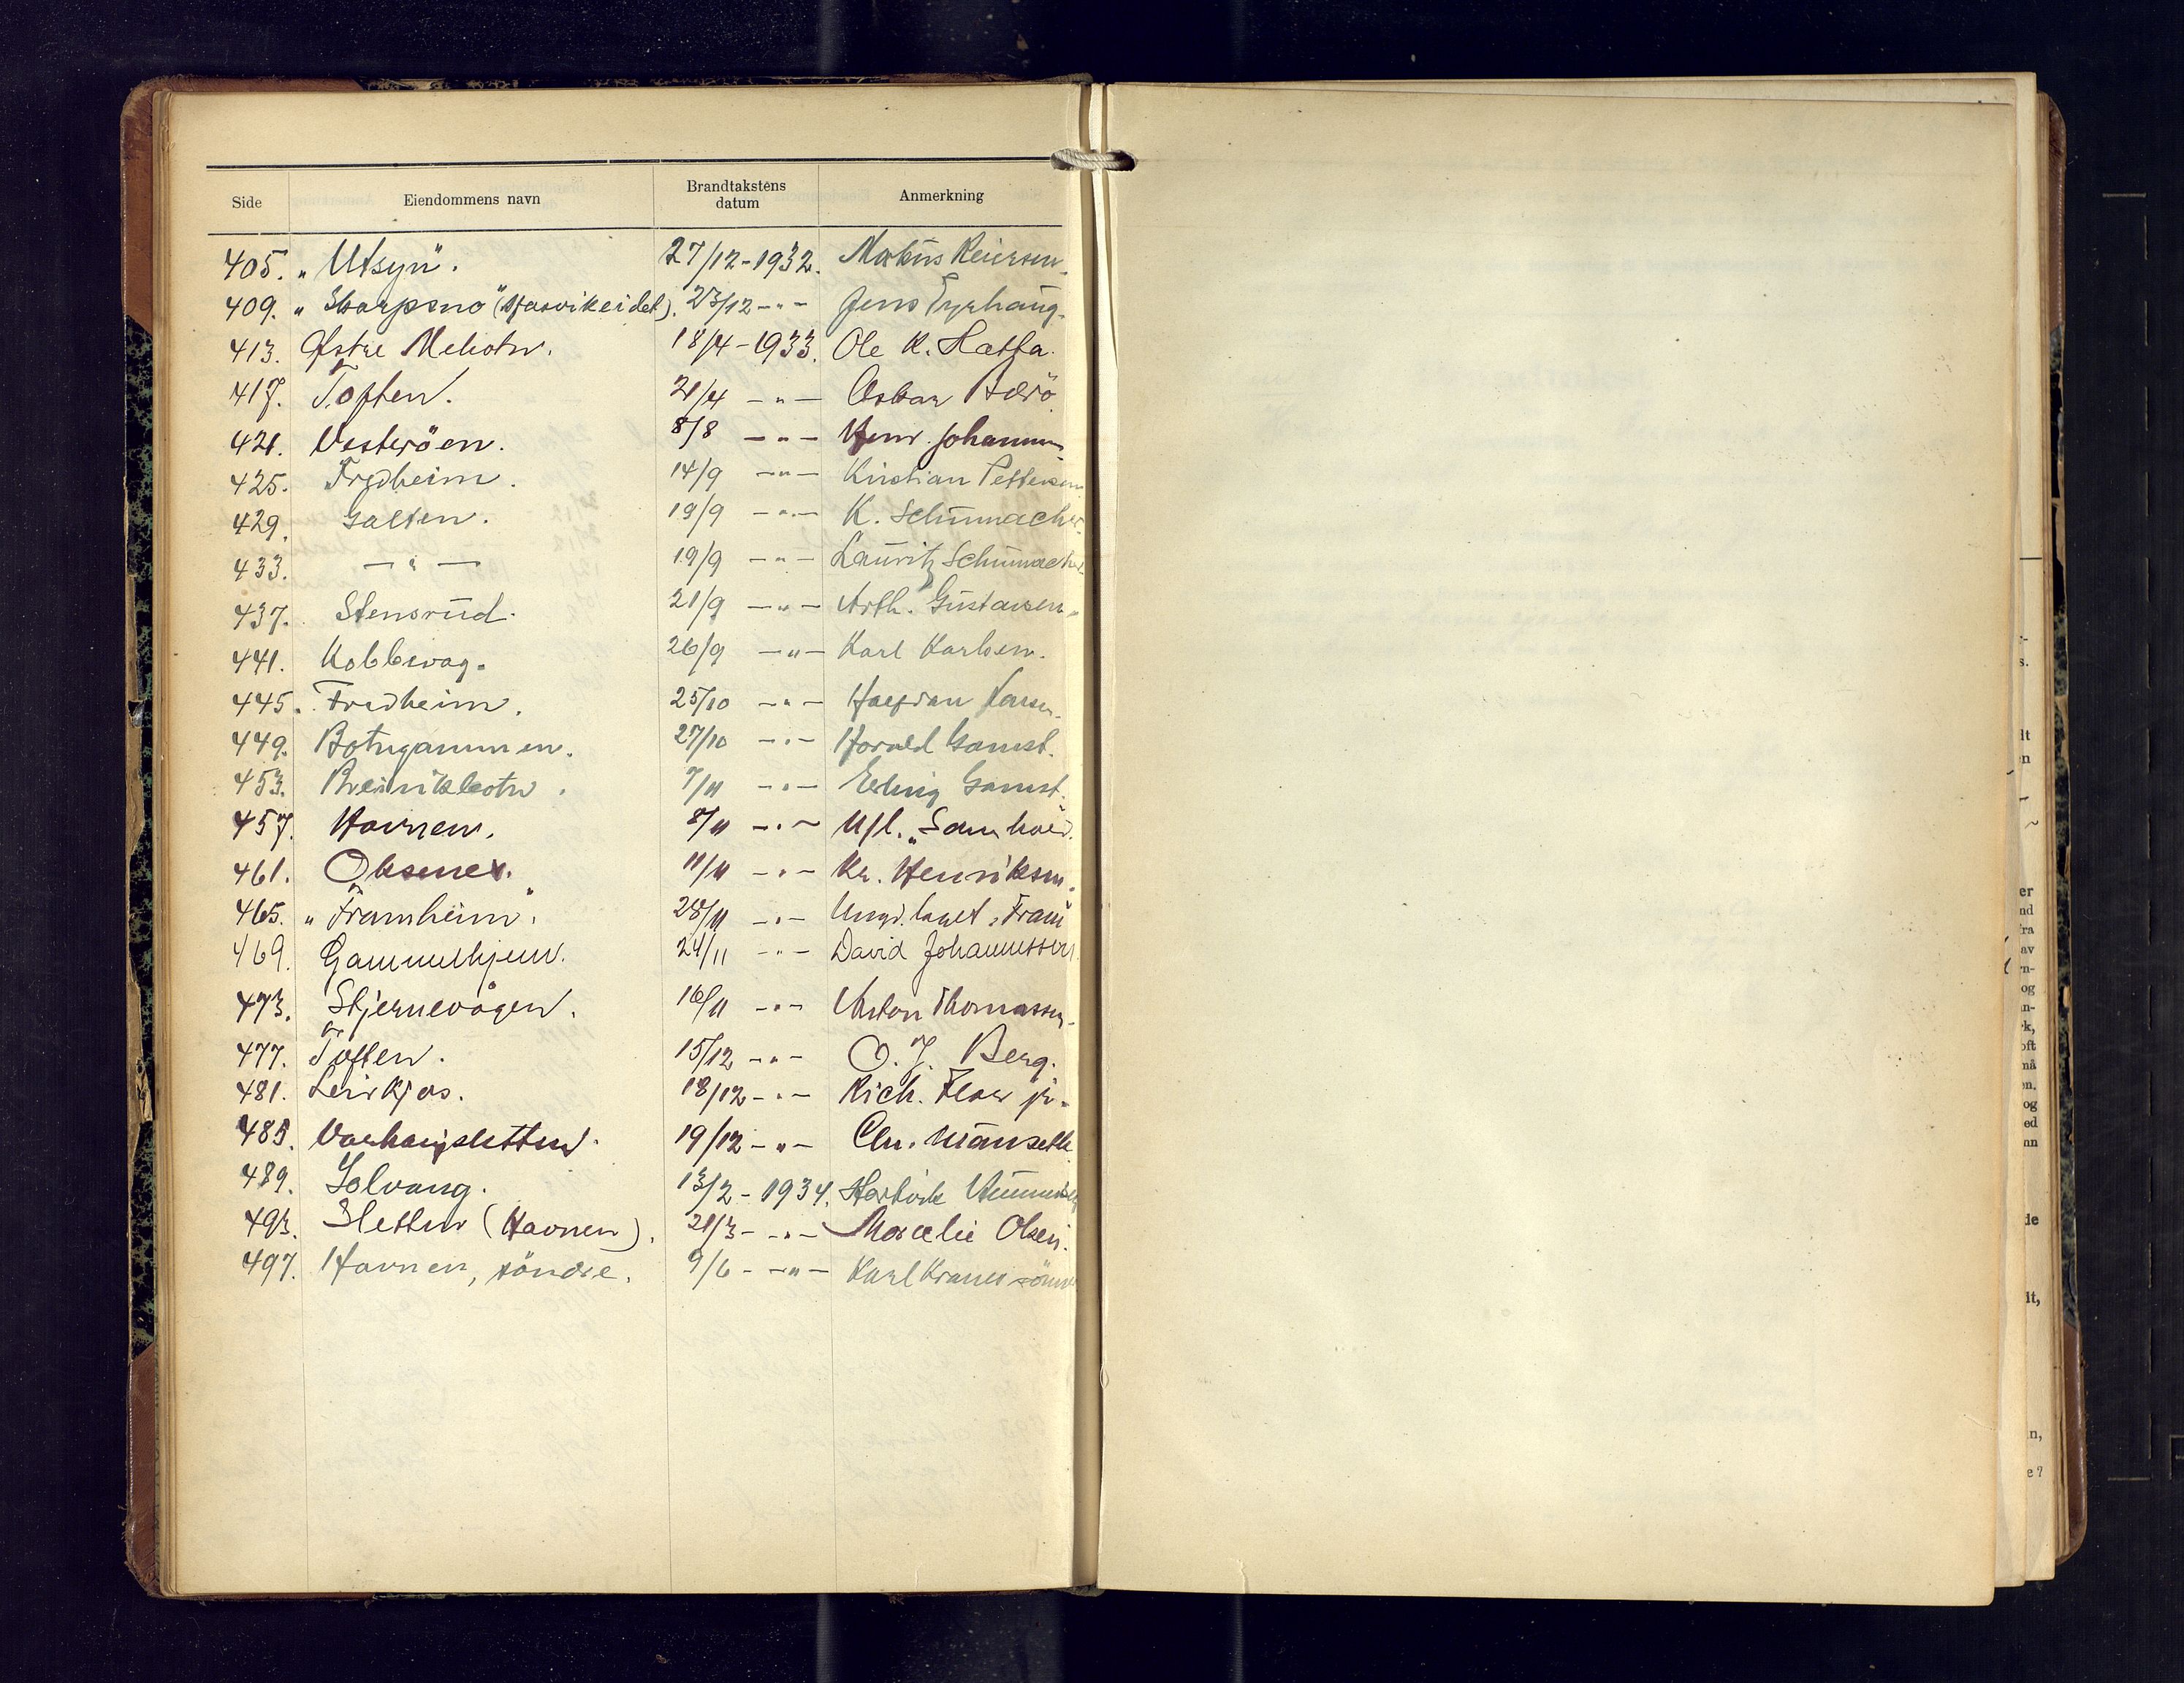 Side Eiendommens navn Brandtakstens datum Anmerkning
405. „Utsyn". 27/12-1932. Markus Reiersen.
409. „Skarpsno" (Hasvikeidet). 23/12 - " - Jens Tyrhaug.
413. Østre Mehotn. 18/4-1933. Ole K. Hætta.
417. Toften. 21/4 - " - Oskar Bærö.
421. Vesteröen. 8/8 - " - Henr. Johannesen
425. Fredheim. 14/9 - " - Kristian Pettersen
429. Galten. 19/9 - " - K. Schumacher
433. - " - 19/9 - " - Lauritz Schumacher
437. Stensrud. 21/9 - " - Arth. Gustavsen.
441. Kobbevag. 26/9 - " - Karl Karlsen.
445. Fredheim. 25/10 - " - Halfdan Hansen.
449. Botngammen. 27/10 - " - Harald Gamst.
453. 7/11 - " - Erling Gamst.
457. Havnen. 8/11 - " - U/l. „Samhold.
461. Oksenes. 11/11 - " - Kr. Henriksen.
465. „Framheim". 28/11 - " - Ungd.laget „Fram"
469. Gammelhjem. 24/11 - " - David Johannessen
473. Stjernevågen. 16/11 - " - Anton Thomassen.
477. Toften. 15/12 - " - O. J. Berg.
481. Leirkjos. 18/12 - " - Rich. Floer jr.
485. Varhaugsletten. 19/12 - " - Chr.
489. Solvang. 13/2-1934. Hartvik
493. Sletten (Havnen). 21/3 - " - Marelie Olsen.
497. Havnen, söndre. 9/6 - " - Karl Kranes